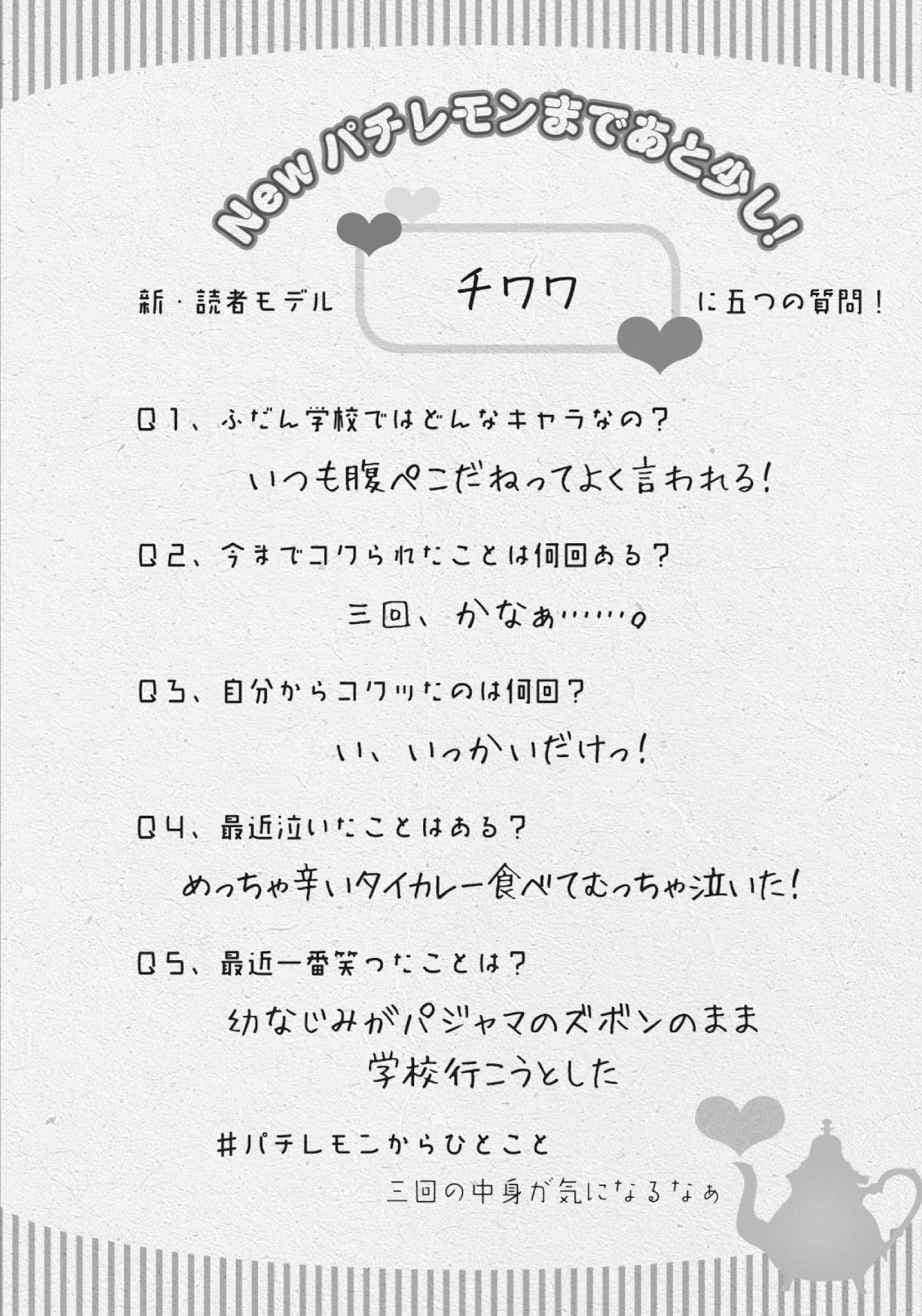 New パチレモンまであと少し!
新・読者モデル チワワ に五つの質問!
Q1、ふだん学校ではどんなキャラなの?
いつも腹ペこだねってよく言われる!
Q2、今までコクられたことは何回ある?
三回、かなぁ……。
Q3、自分からコクッたのは何回?
い、いっかいだけっ!
Q4、最近泣いたことはある?
めっちゃ辛いタイカレー食べてむっちゃ泣いた!
Q5、最近一番笑ったことは?
幼なじみがパジャマのズボンのまま
学校行こうとした
#パチレモンからひとこと
三回の中身が気になるなぁ